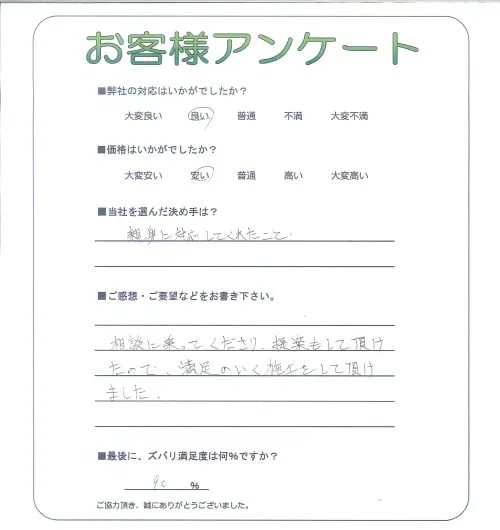 お客様アンケート
■弊社の対応はいかがでしたか？
大変良い 良い 普通 不満 大変不満
■価格はいかがでしたか？
大変安い 安い 普通 高い 大変高い
■当社を選んだ決め手は？
親身に対応してくれたこと。
■ご感想・ご要望などをお書き下さい。
相談に乗ってくださり、提案もして頂け
たので、満足のいく施工をして頂け
ました。
■最後に、ズバリ満足度は何％ですか？
90 %
ご協力頂き、誠にありがとうございました。